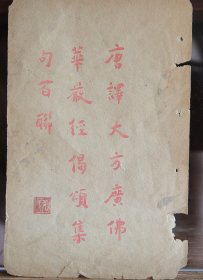 唐譯大方廣佛
華嚴經偈頌集
句百聯